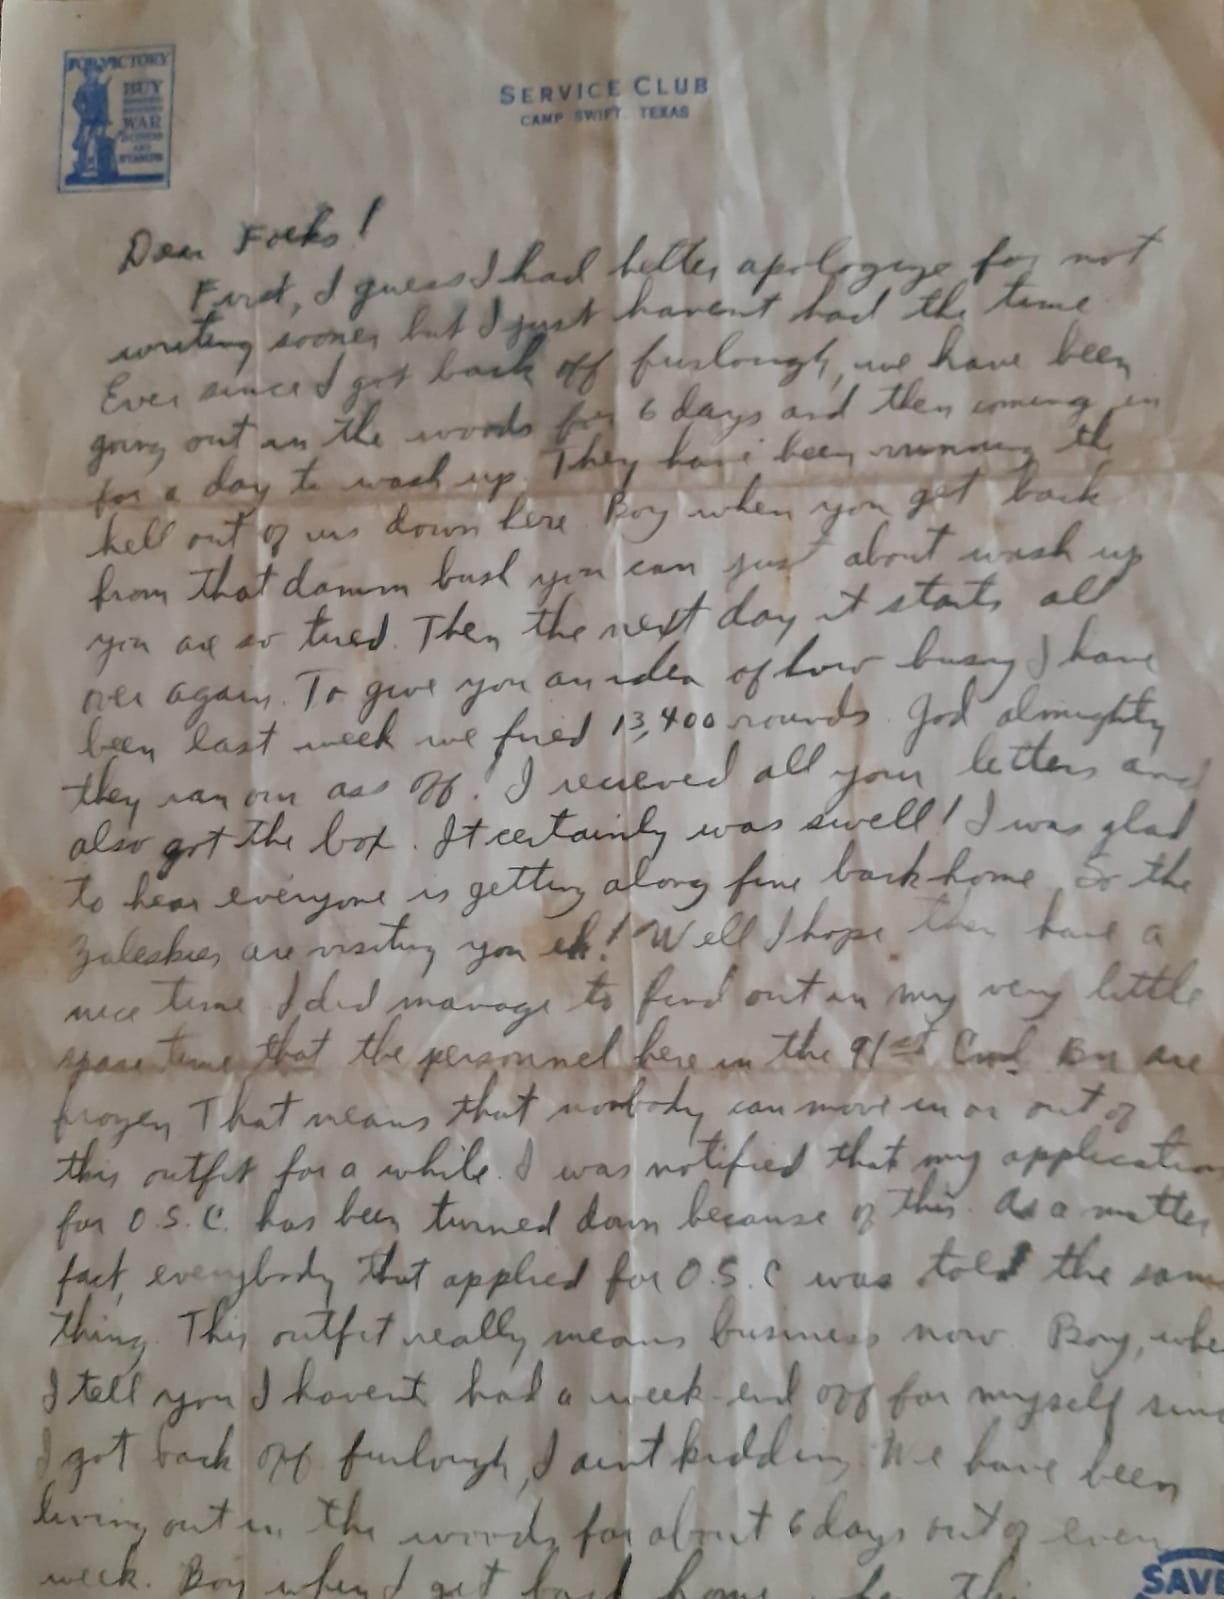 FOR VICTORY
BUY
WAR
BONDS
AND
STAMPS
SERVICE CLUB
CAMP SWIFT, TEXAS
Dear Folks!
First, I guess I had better apologize for not
writing sooner but I just havent had the time
Ever since I got back off furlough, we have been
going out in the woods for 6 days and then coming in
for a day to wash up. They have been running the
hell out of us down here. Boy when you get back
from that damm bush you can just about wash up
you are so tired. Then the next day it starts all
over again. To give you an idea of how busy I have
been last week we fired 13,400 rounds. God almighty
they ran our ass off! I recieved all your letters and
also got the box. It certainly was swell! I was glad
to hear everyone is getting along fine back home. So the
Zaleskies are visiting you eh! Well I hope they have a
nice time I did manage to find out in my very little
spare time that the personnel here in the 91st Cml Bn are
frozen. That means that noobody can move in or out of
this outfit for a while. I was notified that my application
for O.S.C. has been turned down because of this. As a matter
fact, everybody that applied for O.S.C was told the same
thing. This outfit really means business now. Boy, whe
I tell you I havent had a week-end off for myself sinc
I got back off furlough, I aint kidding. We have been
living out in the woods for about 6 days out of every
week. Boy when I get back home this
SAVE